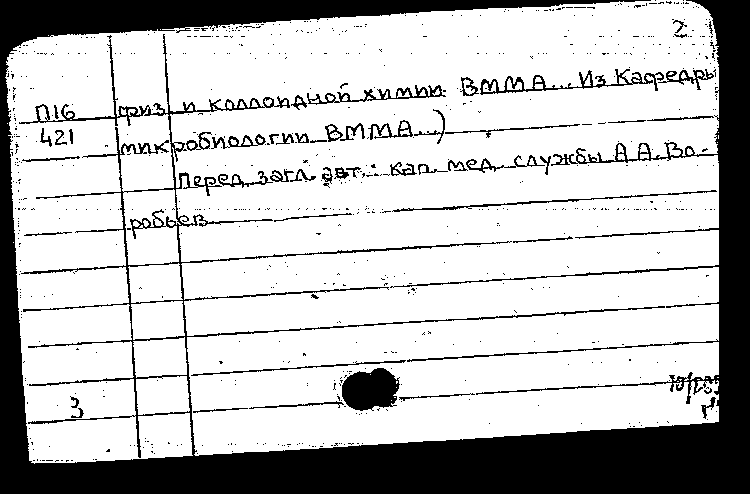 2
П16 физ. и коллоидной химии ВММА... Из Кафедры
421 микробиологии ВММА...)
Перед загл. авт.: кап. мед. службы А.А. Во-
робьев
3